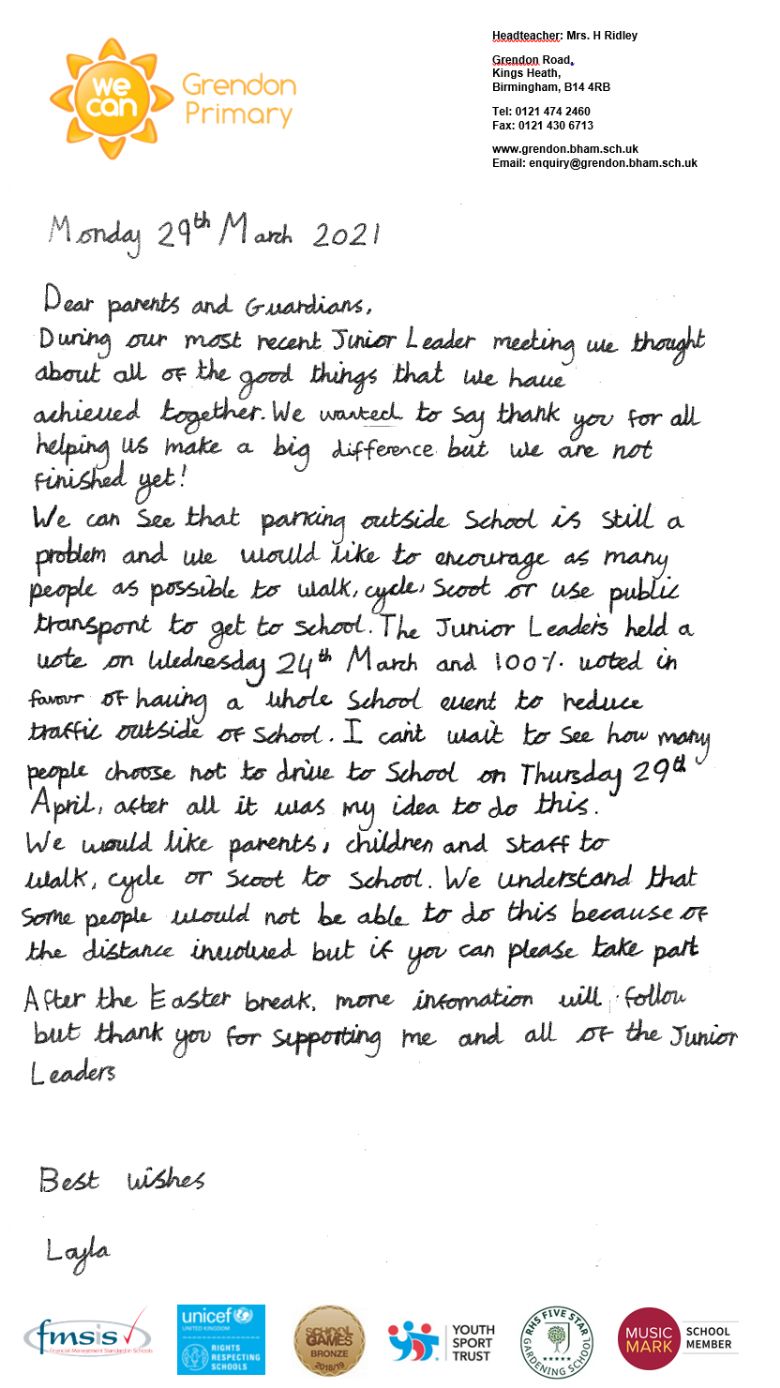 we can
Grendon
Primary
Headteacher: Mrs. H Ridley
Grendon Road,
Kings Heath,
Birmingham, B14 4RB
Tel: 0121 474 2460
Fax: 0121 430 6713
www.grendon.bham.sch.uk
Email: enquiry@grendon.bham.sch.uk
Monday 29th March 2021
Dear parents and Guardians,
During our most recent Junior Leader meeting we thought
about all of the good things that we have
achieved together. We wanted to say thank you for all
helping us make a big difference but we are not
finished yet!
We can See that parking outside School is still a
problem and we would like to encourage as many
people as possible to walk, cycle, Scoot or use public
transport to get to school. The Junior Leaders held a
vote on Wednesday 24th March and 100% voted in
favour of having a whole School event to reduce
traffic outside of School. I can't wait to See how many
people choose not to drive to School on Thursday 29th
April, after all it was my idea to do this.
We would like parents, children and staff to
walk, cycle or Scoot to School. We understand that
Some people would not be able to do this because of
the distance involved but if you can please take part
After the Easter break, more infomation will follow
but thank you for Supporting me and all of the Junior
Leaders
Best wishes
Layla
fmsis
Financial Management Standard in Schools
unicef
UNITED KINGDOM
RIGHTS
RESPECTING
SCHOOLS
SCHOOL
GAMES
BRONZE
2018/19
YOUTH
SPORT
TRUST
RHS FIVE STAR
GARDENING SCHOOL
MUSIC
MARK
SCHOOL
MEMBER